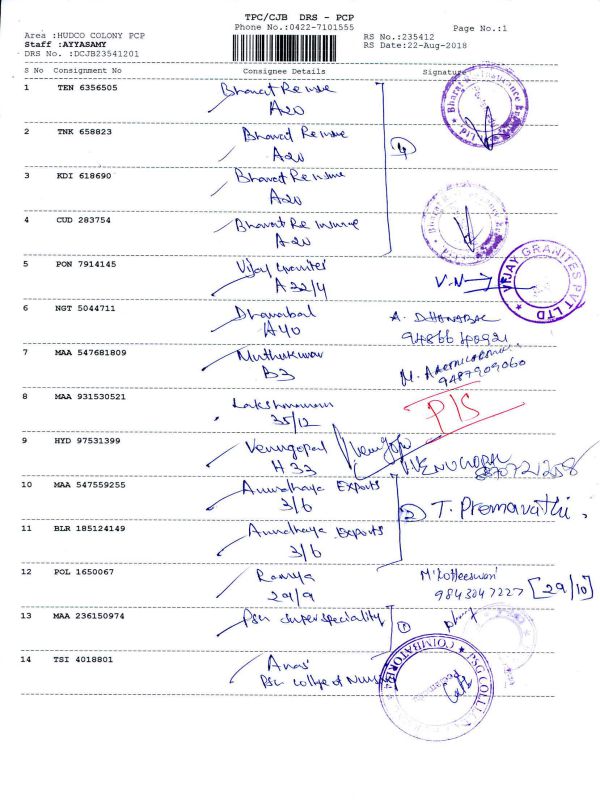 TPC/CJB DRS - PCP
Phone No.:0422-7101555
Page No.:1
Area :HUDCO COLONY PCP
Staff :AYYASAMY
DRS No. :DCJB23541201
RS No.:235412
RS Date:22-Aug-2018
S No Consignment No Consignee Details Signature
1 TEN 6356505 Bharat Re insure
A20
2 TNK 658823 Bharat Re insure
A20
3 KDI 618690 Bharat Re insure
A20
4 CUD 283754 Bharat Re insurce
A20
4
5 PON 7914145 Vijay Granites V.N
A 32/4
VIJAY GRANITES PVT LTD
6 NGT 5044711 Dhanabal A. DHANABAL
A40
7 MAA 547681809 Muthukumar M.
B3 9487909060
8 MAA 931530521 Lakshmanan P/S
35/12
9 HYD 97531399 Venugopal VENUGOPAL
H 33
10 MAA 547559255 Anudhaya Exports
3/6
2 T. Premavathi.
11 BLR 185124149 Anudhaya Exports
3/6
12 POL 1650067 Ramya M. Kotteeswari
29/9 9843047227 [29/10]
13 MAA 236150974 Psg superspeciality
1
14 TSI 4018801 Anas
Psg college of Nursing
COIMBATORE PSG COLL